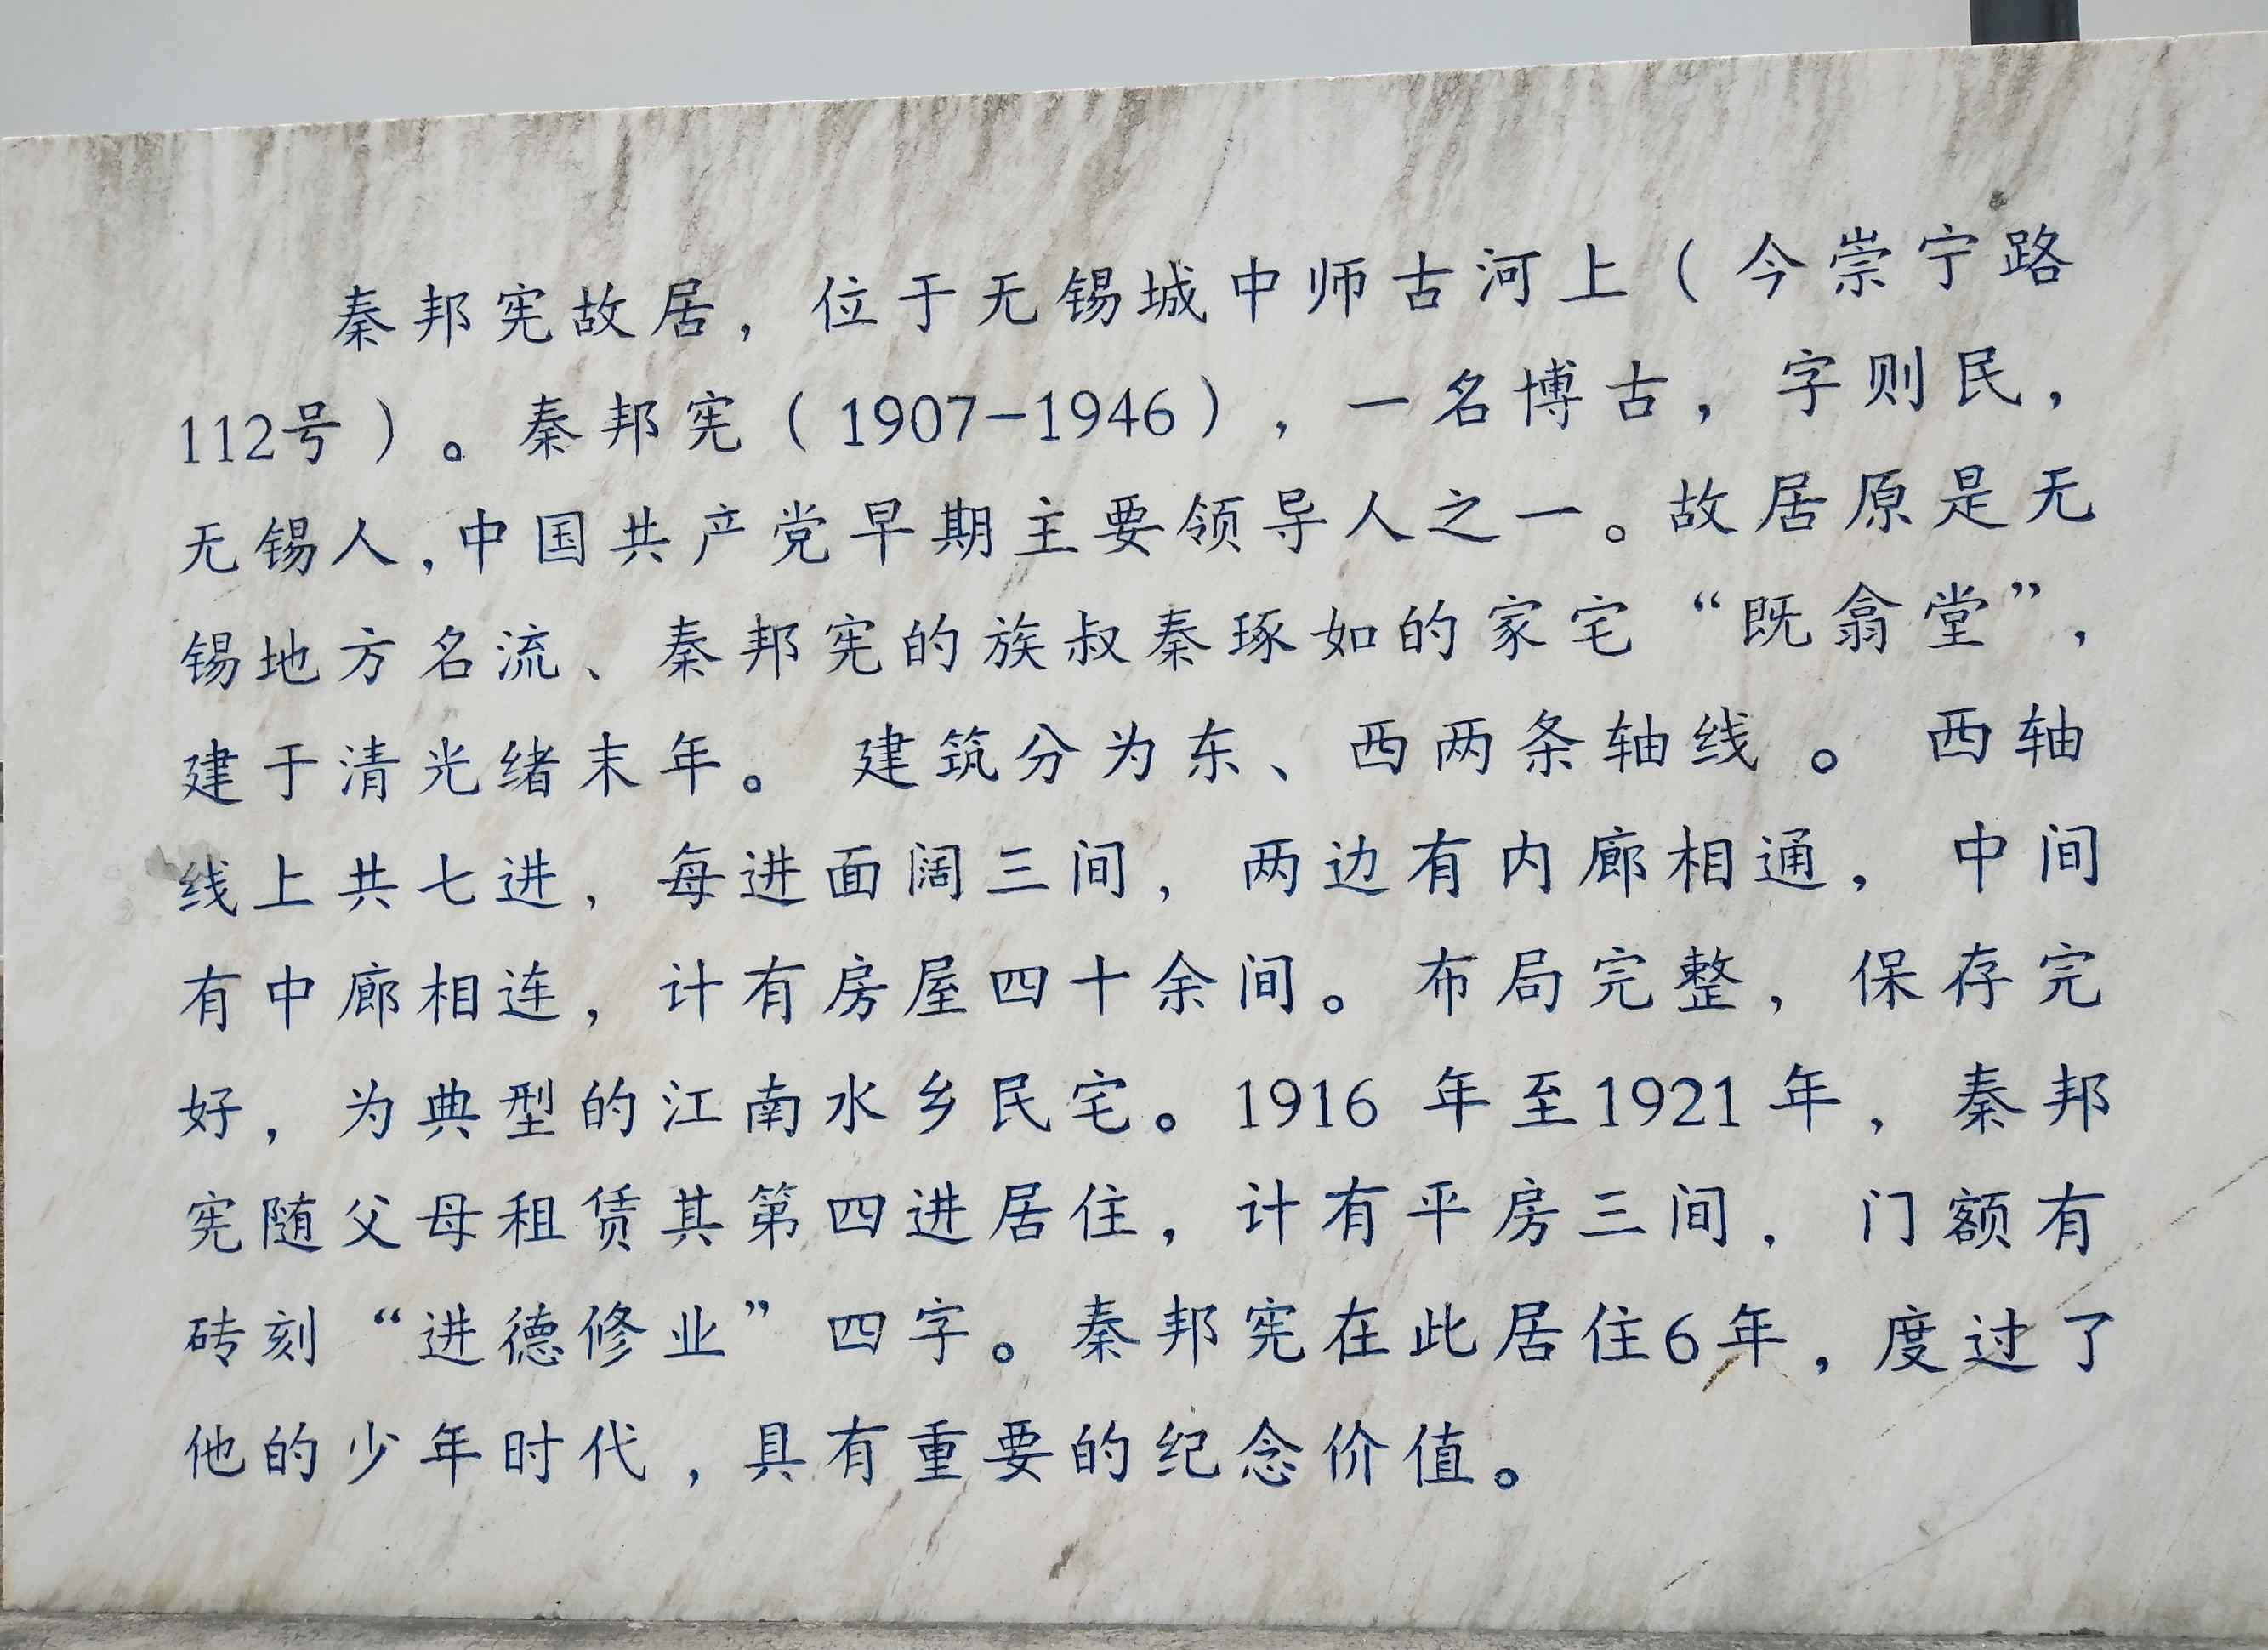 秦邦宪故居，位于无锡城中师古河上（今崇宁路
112号）。秦邦宪（1907-1946），一名博古，字则民，
无锡人,中国共产党早期主要领导人之一。故居原是无
锡地方名流、秦邦宪的族叔秦琢如的家宅“既翕堂”，
建于清光绪末年。 建筑分为东、西两条轴线 。 西轴
线上共七进，每进面阔三间，两边有内廊相通， 中间
有中廊相连，计有房屋四十余间。布局完整，保存完
好，为典型的江南水乡民宅。1916 年至1921年，秦邦
宪随父母租赁其第四进居住，计有平房三间， 门额有
砖刻“进德修业”四字。秦邦宪在此居住6年，度过了
他的少年时代，具有重要的纪念价值。